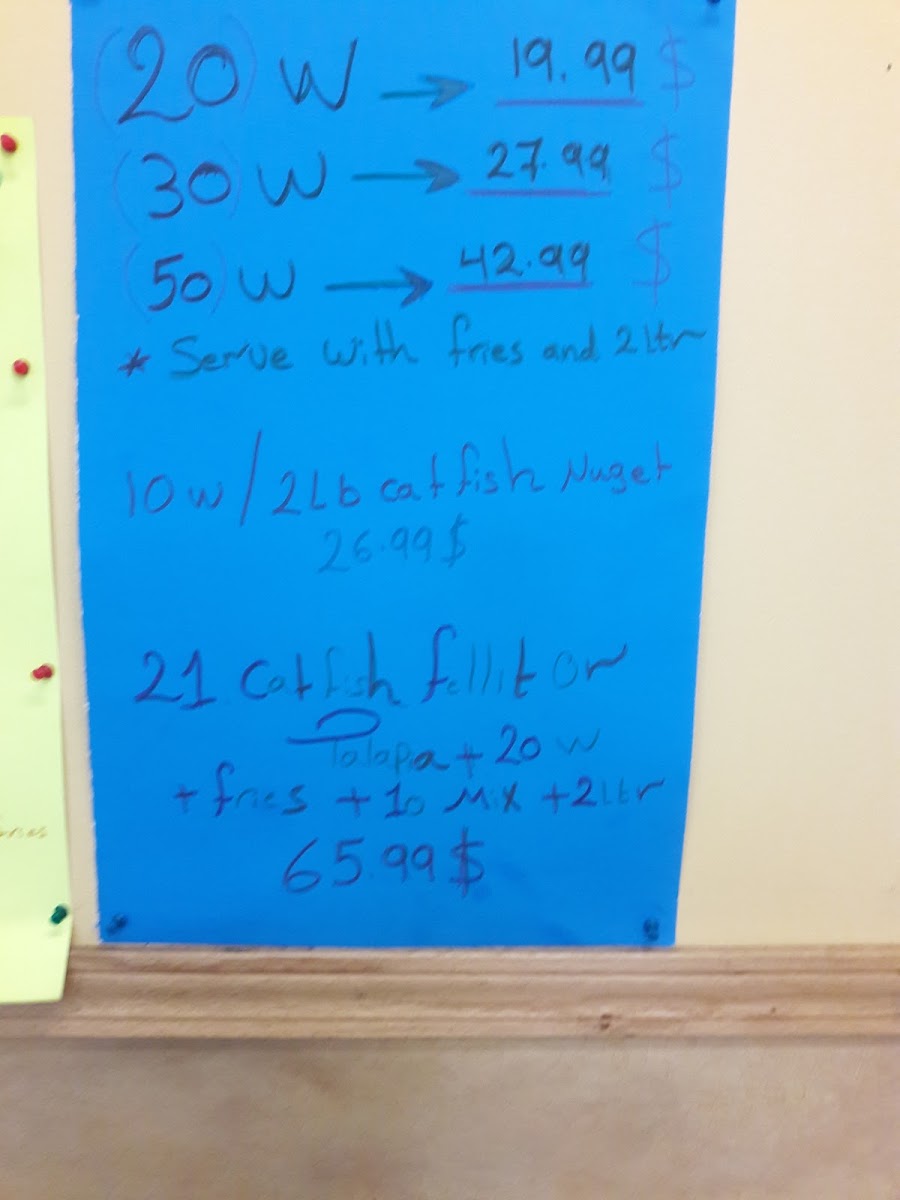 (20) W → 19.99 $
(30) W → 27.99 $
(50) W → 42.99 $
* Serve with fries and 2 Ltr
10 w / 2 Lb catfish Nuget
26.99 $
21 Catfish fellit Or
Talapia + 20 W
+ fries + 10 Mix + 2 Ltr
65.99 $